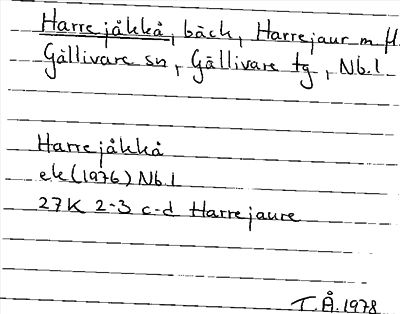 Harrejåkkå, bäck, Harrejaur m fl.
Gällivare sn, Gällivare tg, Nb.l
Harrejåkkå
ek(1976) Nb.l
27K 2-3 c-d Harrejaure
T.Å.1978